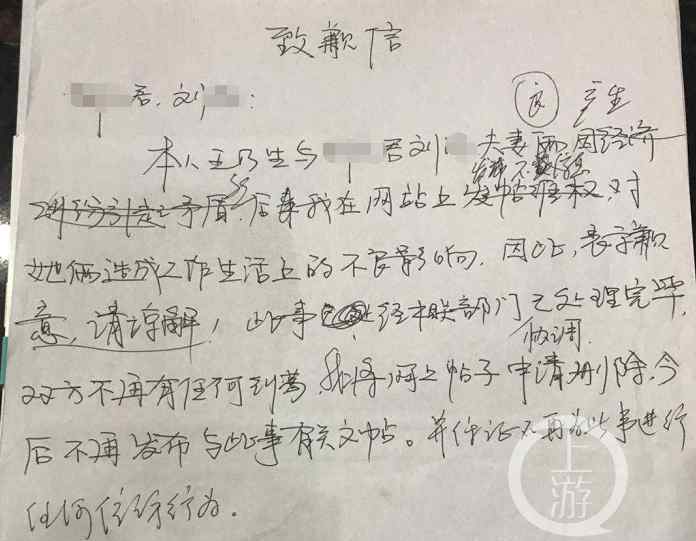 致歉信
君、刘：
产生
本人王乃生与 君刘 夫妻俩因经济
矛盾，后来我在网站上发帖维权，对
她俩造成工作生活上的不良影响。因此，表示歉
意，请谅解！此事 经相关部门已处理完毕，
协调
双方不再有任何纠葛，我将网上帖子申请删除，今
后不再发布与此事有关文帖。并保证不再为此事进行
任何 行为。
上游